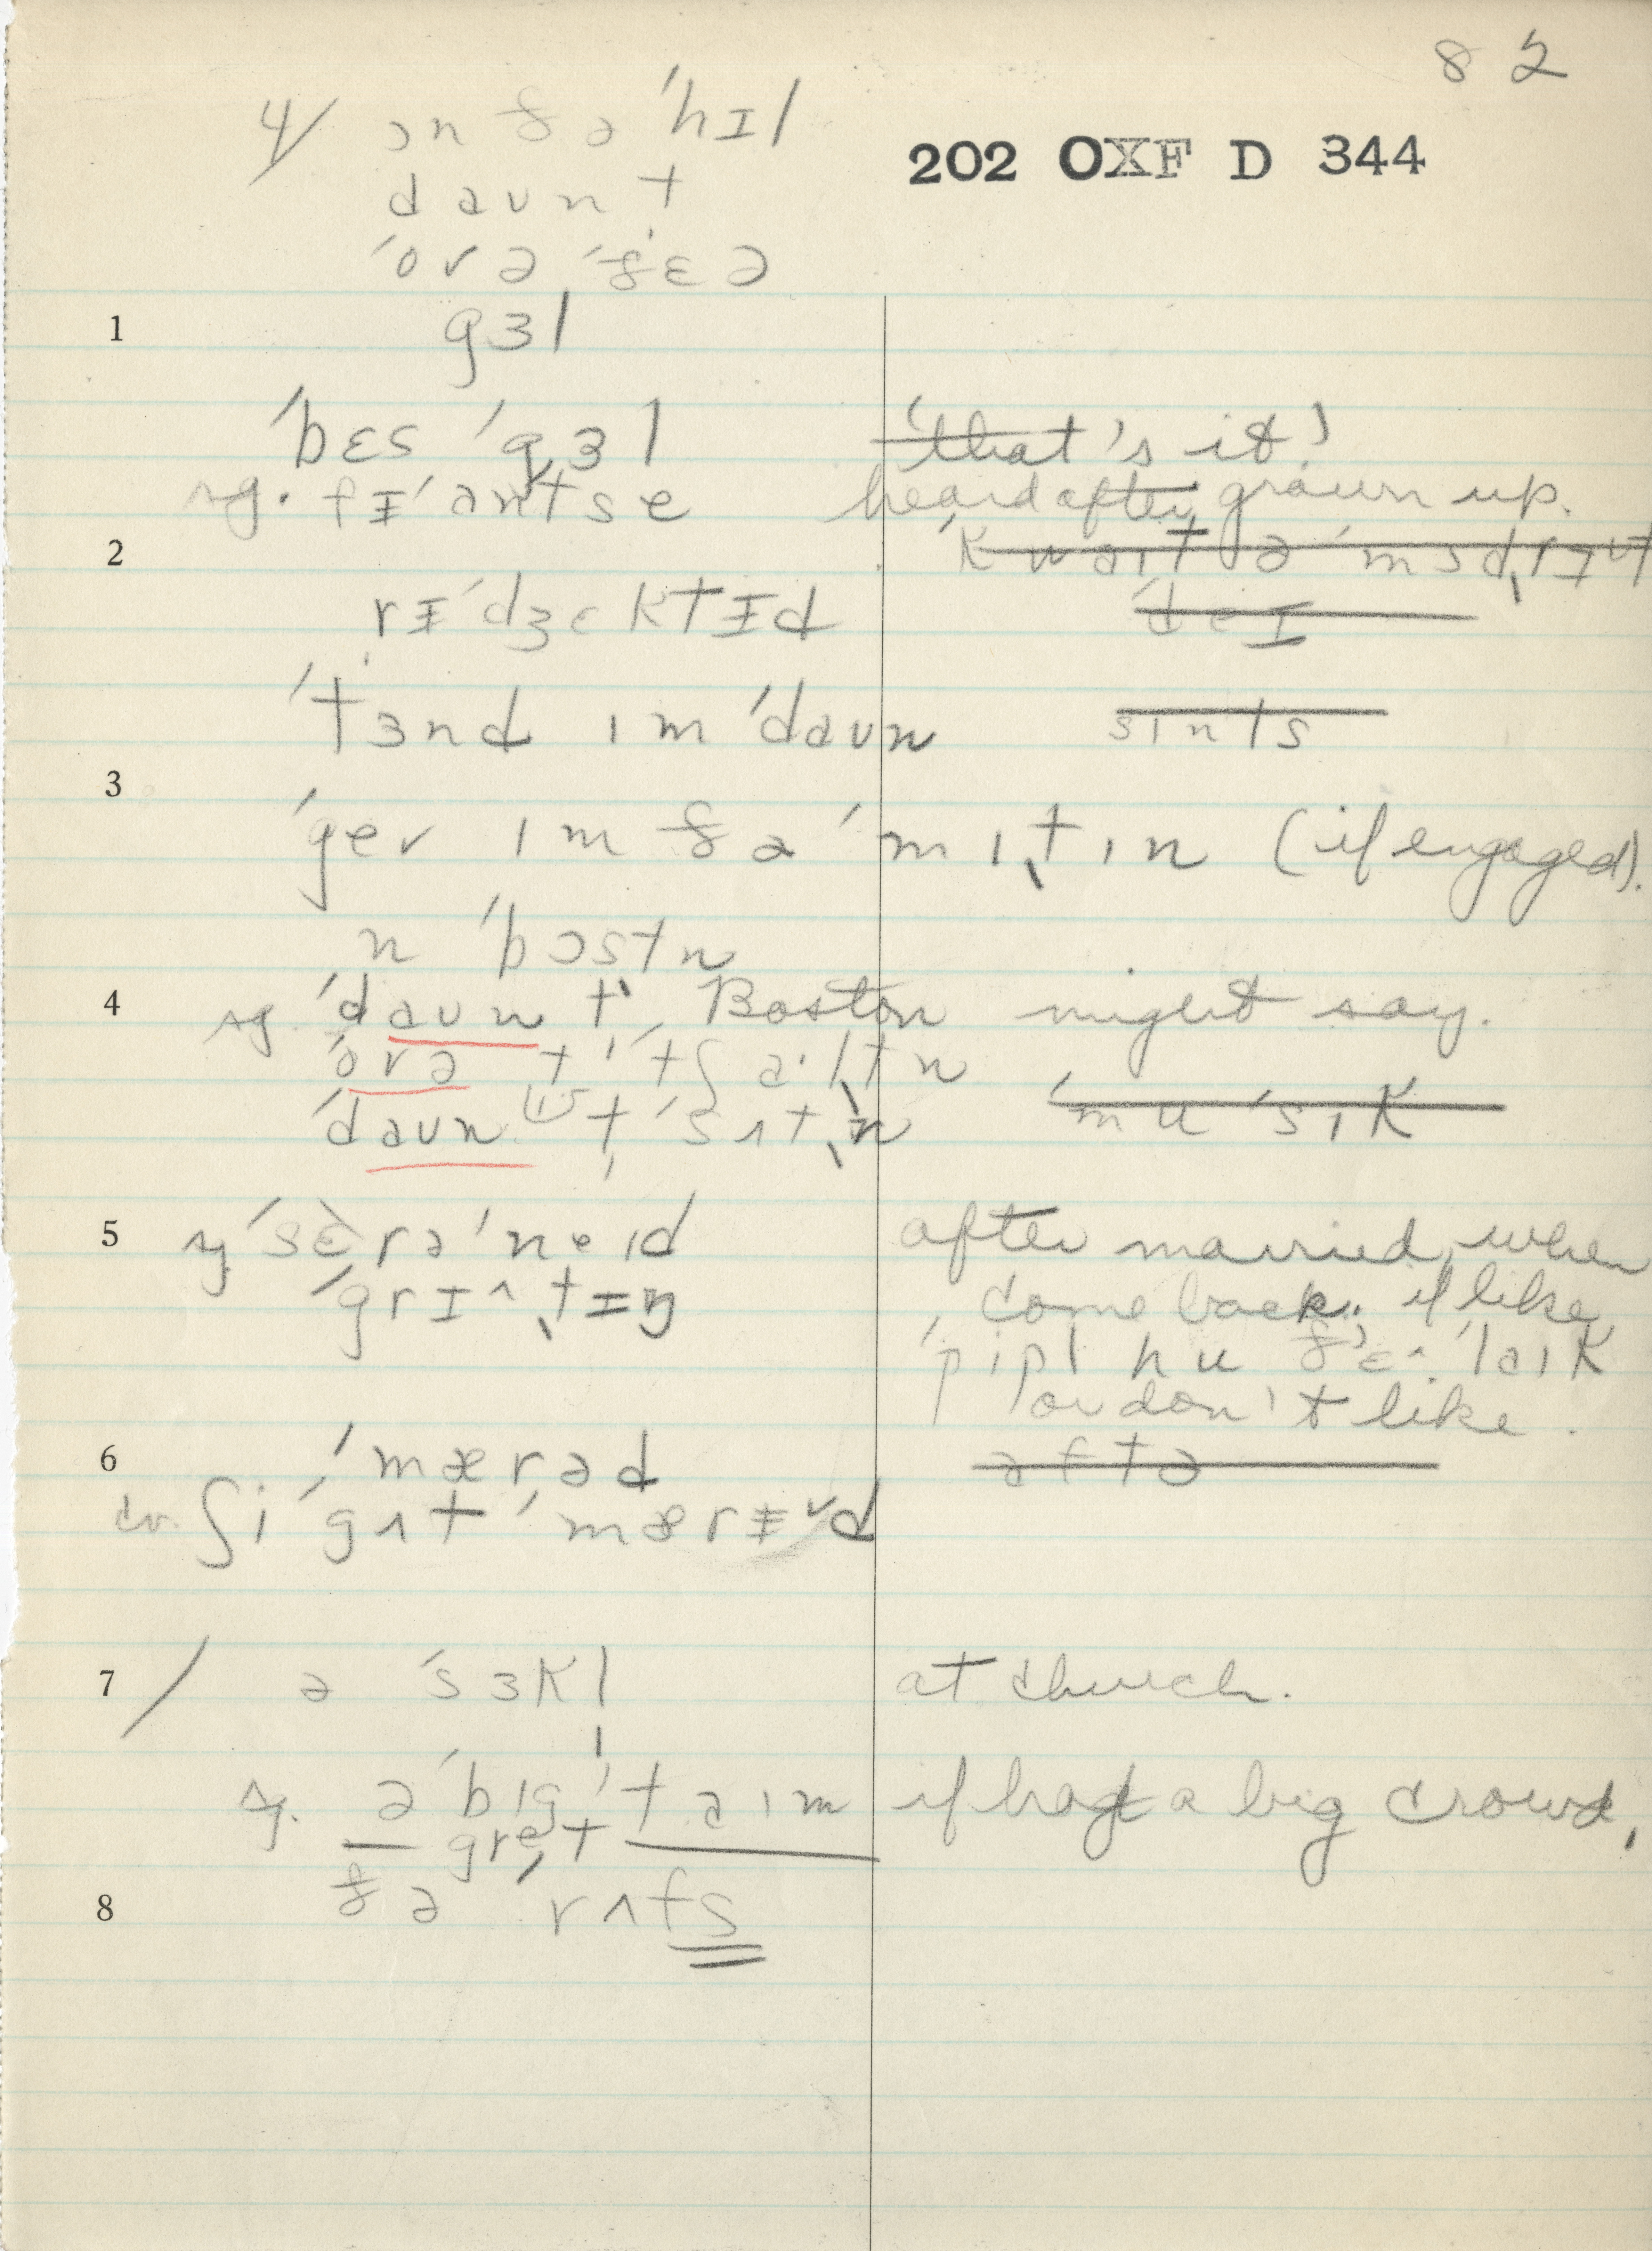 82
202 OXF D 344
4/ ɔn ðə ˈhɪl
daʊnt
ˈorə ˈðɛə
1 gɜl
ˈbɛs ˈgɜl ˈthat's it!
sg. fɪˈantse heard after grown up.
2 ˈkwaɪt ə ˈmɜdrɪʊt
rɪˈdʒɛktɪd ˈdeɪ
ˈtɜnd ɪm ˈdaʊn sɪnts
3
ˈgev ɪm ðə ˈmɪtɪn (if engaged).
n ˈbɔstn
4 sg ˈdaʊn tˈ Boston might say.
ˈorə t ˈtʃaˑltn
ˈdaʊn t ˈsʌtn ˈmuˈsɪk
5 sg ˈsɛrəˈneɪd after married, when
ˈgrɪ^tɪŋ come back. if like
ˈpipl hu ðɛ^ ˈlaɪk
or don't like.
6 ˈmærəd aftə
cv. ʃi ˈgʌt ˈmærɪd
7 / ə ˈsɜkl at church.
sg. ə ˈbɪg ˈtaɪm if had a big crowd,
gret
8 ðə ˈrʌfs